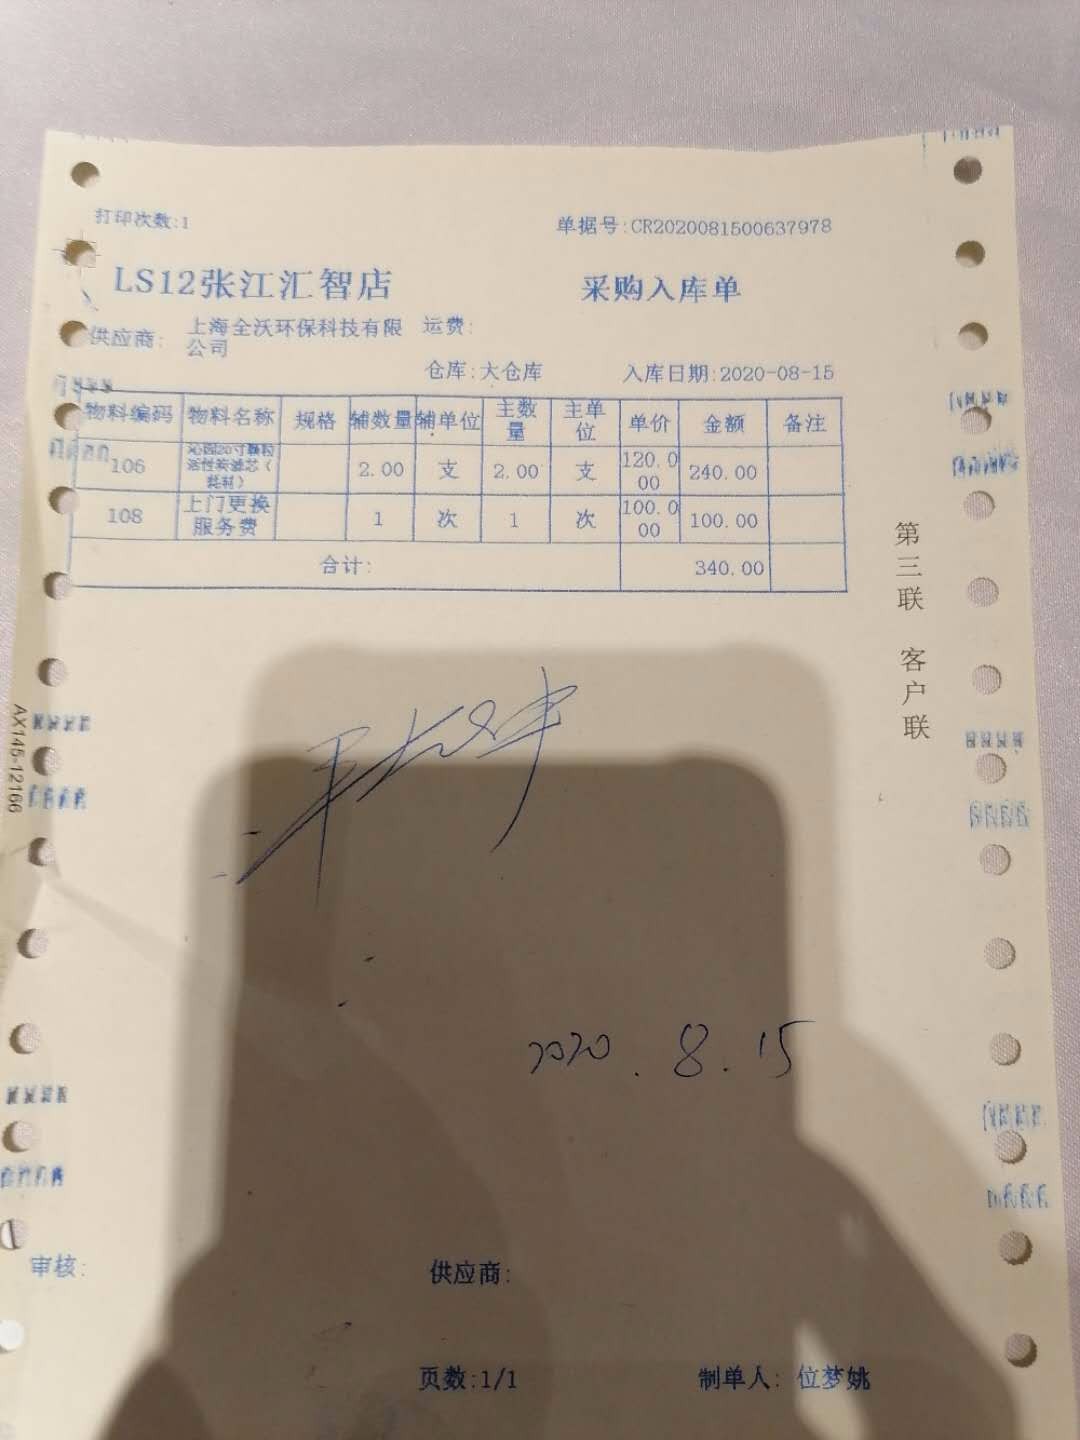 打印次数:1
单据号:CR2020081500637978
LS12张江汇智店
采购入库单
供应商:
上海全沃环保科技有限
公司
运费:
仓库:大仓库
入库日期:2020-08-15
物料编码 物料名称 规格 辅数量 辅单位 主数量 主单位 单价 金额 备注
106 沁园20寸颗粒活性炭滤芯(耗材) 2.00 支 2.00 支 120.000 240.00
108 上门更换服务费 1 次 1 次 100.000 100.00
合计: 340.00
第三联 客户联
AX145-12166
2020.8.15
审核:
供应商:
页数:1/1
制单人: 位梦姚